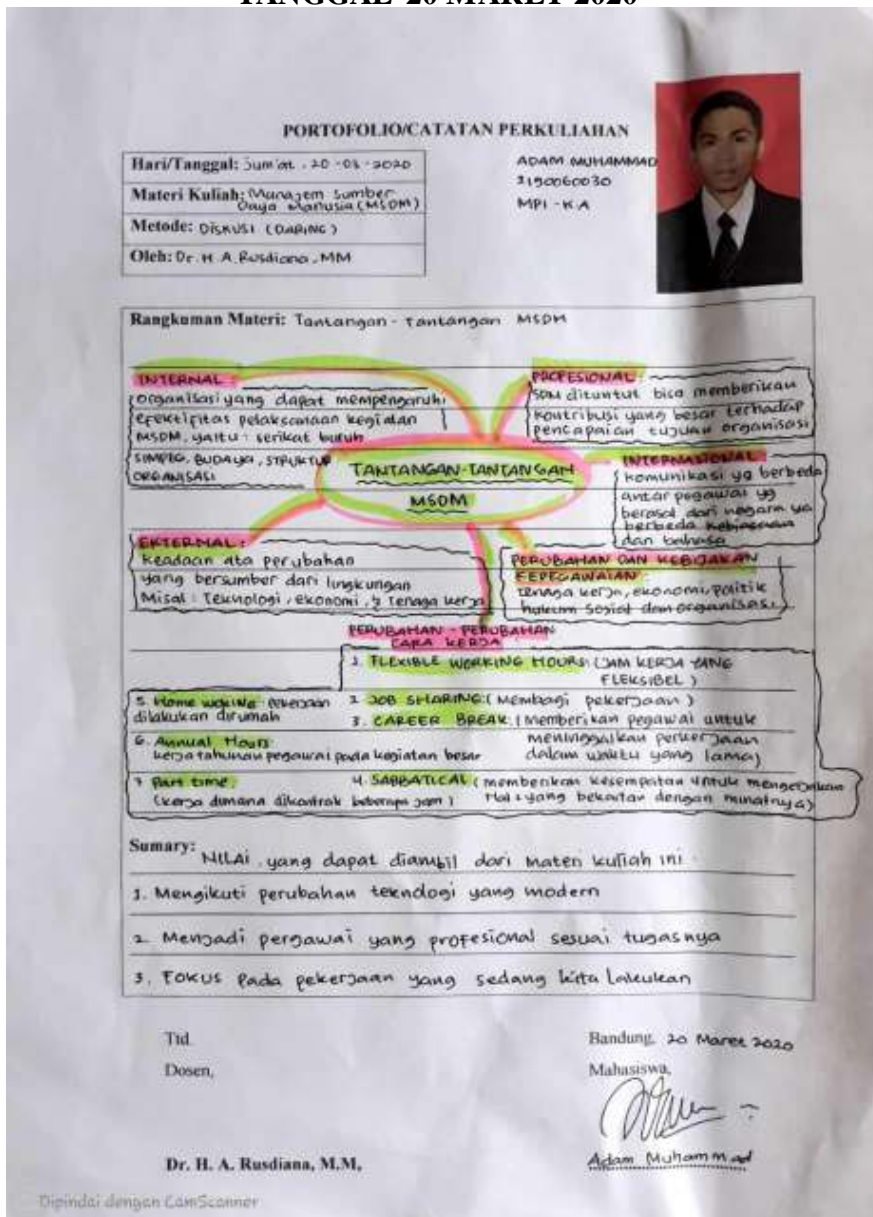 TANGGAL 20 MARET 2020
PORTOFOLIO/CATATAN PERKULIAHAN
Hari/Tanggal: Jum'at . 20 - 03 - 2020
Materi Kuliah: Manajem Sumber
Daya Manusia (MSDM)
Metode: DISKUSI (DARING)
Oleh: Dr. H. A. Rusdiana, MM
ADAM MUHAMMAD
2190060030
MPI - K A
Rangkuman Materi: Tantangan - Tantangan MSDM
INTERNAL :
organisasi yang dapat mempengaruhi
efektifitas pelaksanaan kegiatan
MSDM, yaitu : serikat buruh
SIMPEG, BUDAYA, STRUKTUR
ORGANISASI
PROFESIONAL :
SDM dituntut bisa memberikan
kontribusi yang besar terhadap
pencapaian tujuan organisasi
TANTANGAN-TANTANGAN
MSDM
INTERNASIONAL
komunikasi yg berbeda
antar pegawai yg
berasal dari negara yg
berbeda kebiasaan
dan bahasa
EKTERNAL :
keadaan ata perubahan
yang bersumber dari lingkungan
Misal : Teknologi, ekonomi, & Tenaga kerja
PERUBAHAN DAN KEBIJAKAN
KEPEGAWAIAN
tenaga kerja, ekonomi, politik
hukum sosial dan organisasi
PERUBAHAN - PERUBAHAN
CARA KERJA
1. FLEXIBLE WORKING HOURS (JAM KERJA YANG
FLEKSIBEL)
2. JOB SHARING (Membagi pekerjaan)
3. CAREER BREAK (Memberikan pegawai untuk
meninggalkan perkerjaan
dalam waktu yang lama)
4. SABBATICAL (memberikan kesempatan untuk mengerjakan
Hal-yang bekaitan dengan minatnya)
5. Home woking pekerjaan
dilakukan dirumah
6. Annual Hours
kerja tahunan pegawai pada kegiatan besar
7 Part time :
(kerja dimana dikontrak beberapa jam)
Sumary: NILAI yang dapat diambil dari materi kuliah ini
1. Mengikuti perubahan teknologi yang modern
2. Menjadi pergawai yang profesional sesuai tugasnya
3. FOKUS Pada pekerjaan yang sedang kita lakukan
Ttd.
Dosen,
Dr. H. A. Rusdiana, M.M,
Bandung, 20 Maret 2020
Mahasiswa,
Adam Muhammad
Dipindai dengan CamScanner